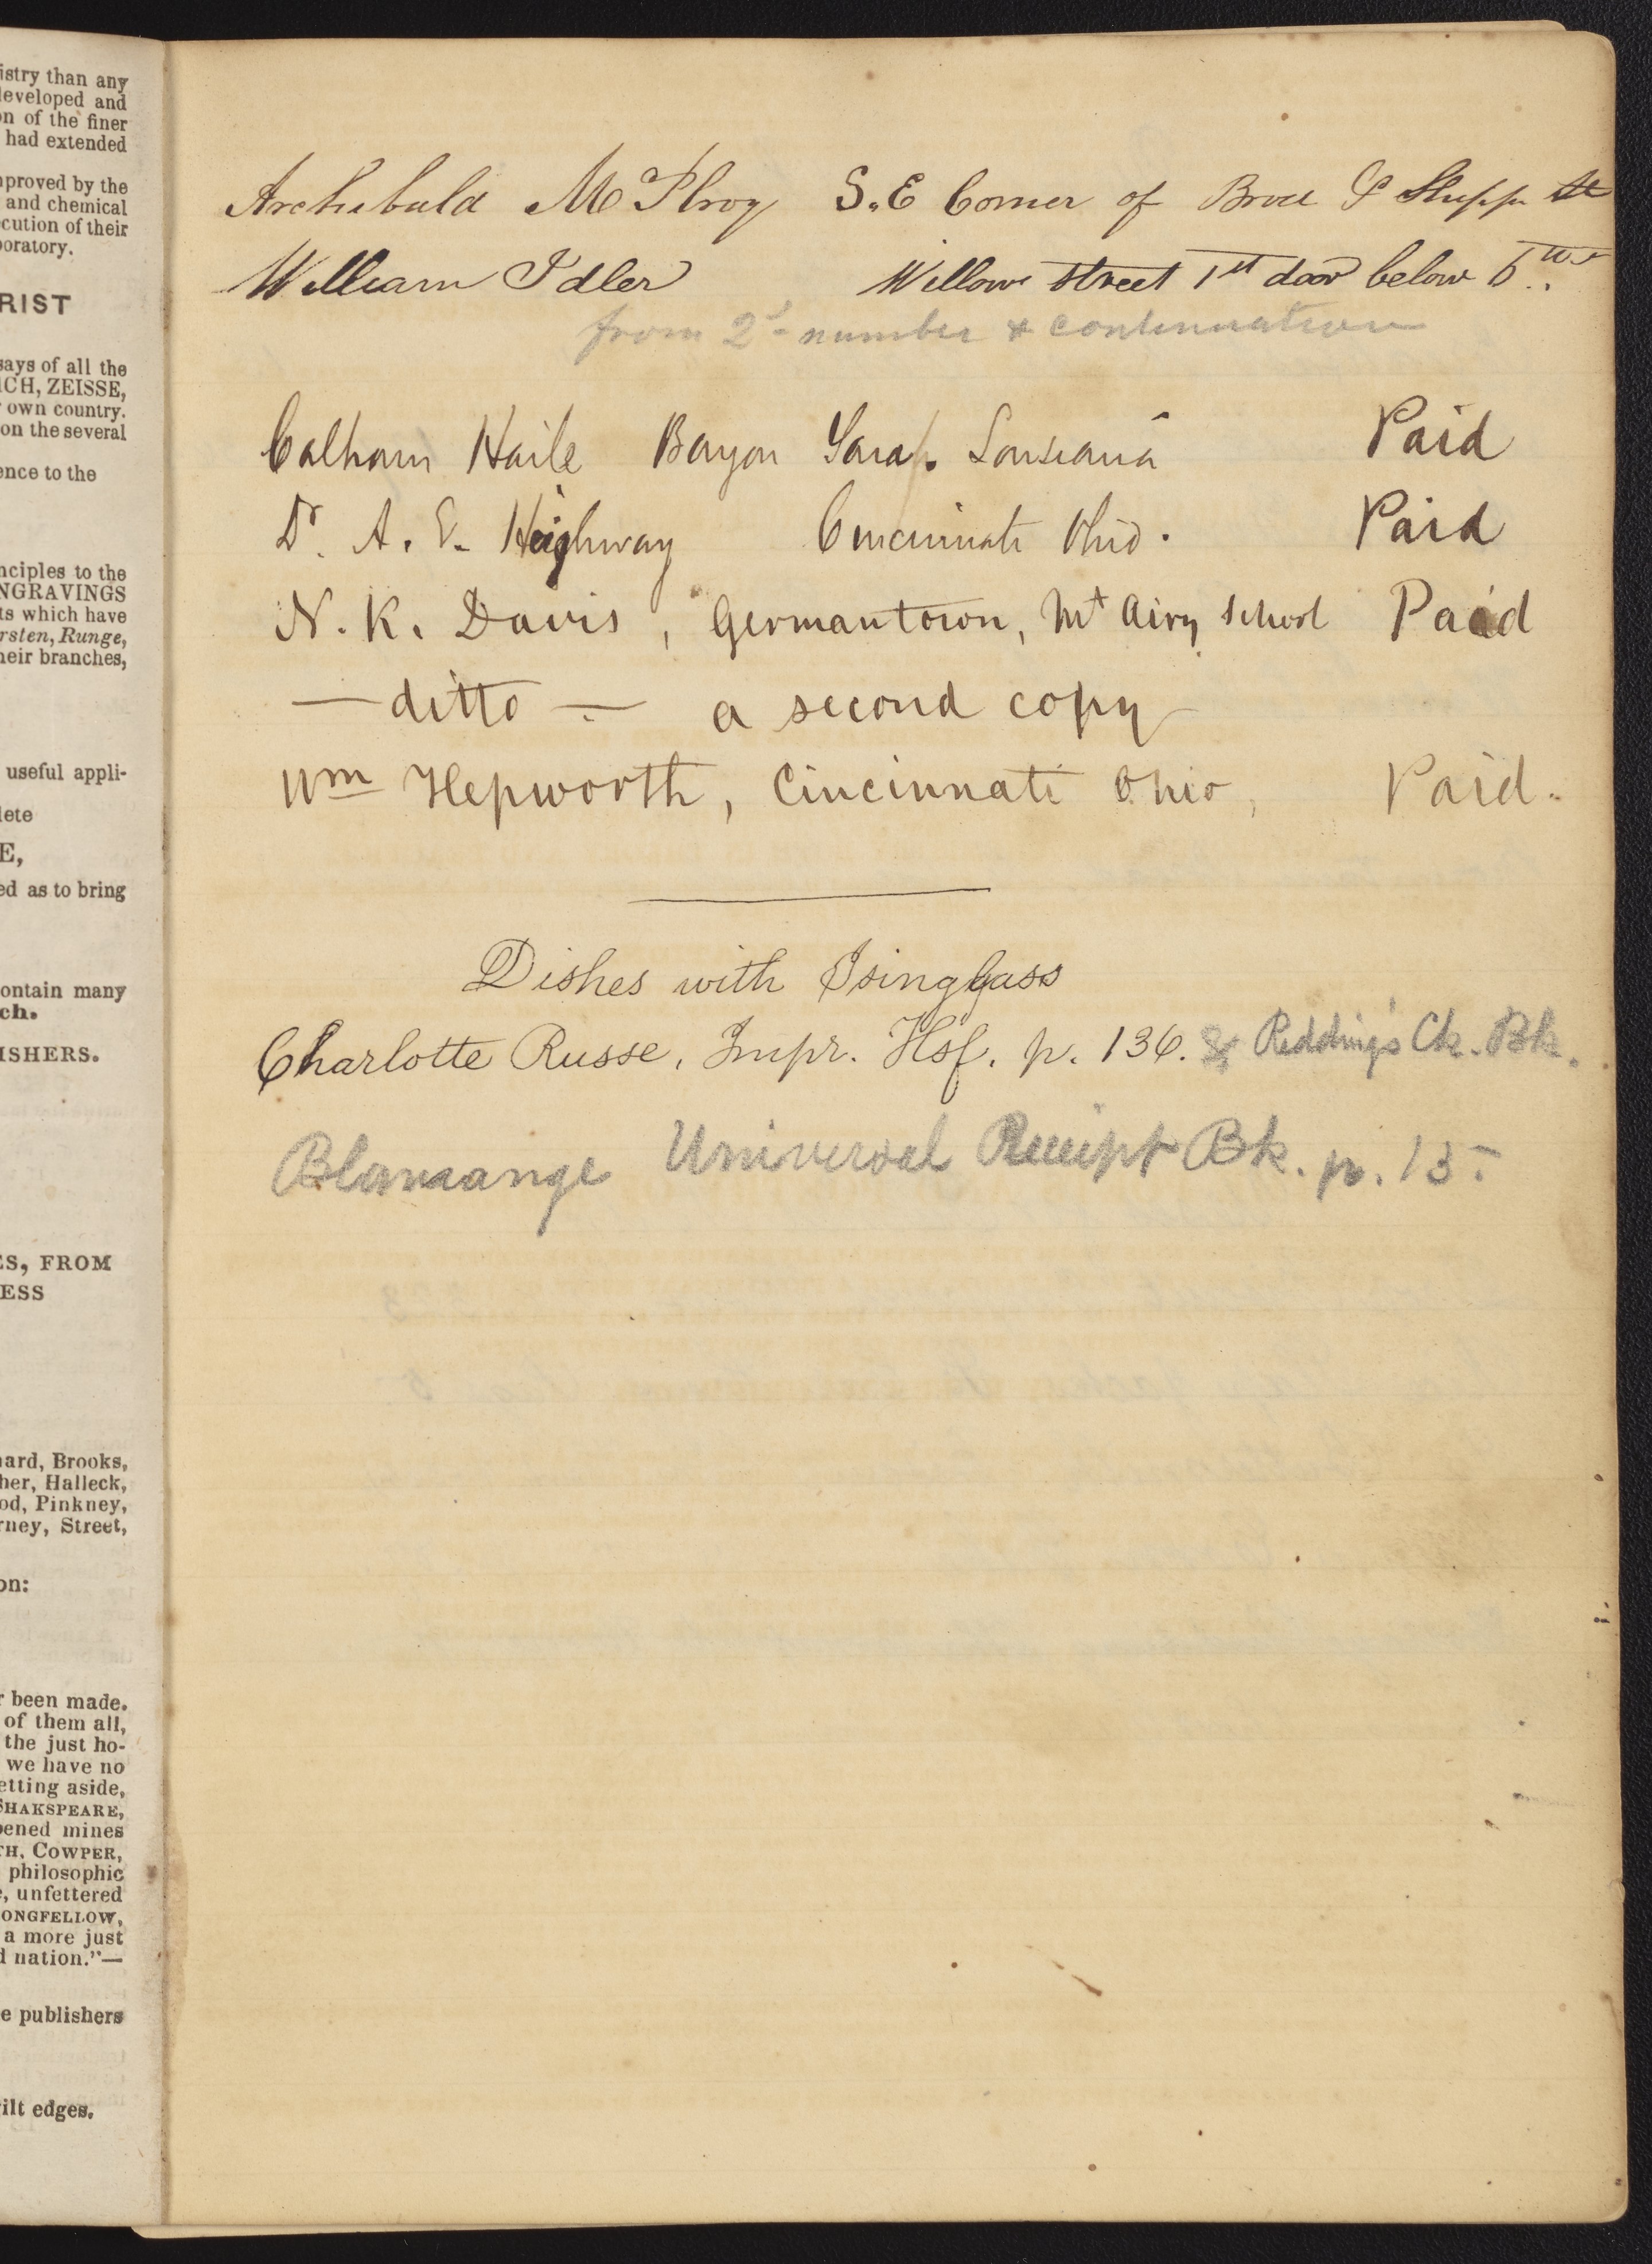 istry than any
developed and
on of the finer
had extended
nproved by the
and chemical
cution of their
boratory.
RIST
says of all the
ICH, ZEISSE,
own country.
on the several
ence to the
nciples to the
NGRAVINGS
ts which have
rsten, Runge,
heir branches,
useful appli-
lete
E,
ed as to bring
ontain many
ch.
ISHERS.
ES, FROM
ESS
nard, Brooks,
her, Halleck,
od, Pinkney,
rney, Street,
on:
r been made.
of them all,
the just ho-
we have no
etting aside,
SHAKSPEARE,
pened mines
TH, COWPER,
philosophic
e, unfettered
ONGFELLOW,
a more just
d nation."—
e publishers
ilt edges.
Archibald McIlroy S.E Corner of Broad & St
William Idler Willow street 1st door below 6th
from 2d number & continuation
Calhoun Haile Bayou Sarah. Louisiana Paid
Dr. A. E. Heighway Cincinnati Ohio. Paid
N. K. Davis, Germantown, Mt Airy School Paid
— ditto — a second copy
Wm Hepworth, Cincinnati Ohio, Paid.
Dishes with Isinglass
Charlotte Russe, Impr. Hsf. p. 136. & Redding's Ck. Bk.
Blamange Universal Receipt Bk. p. 15.